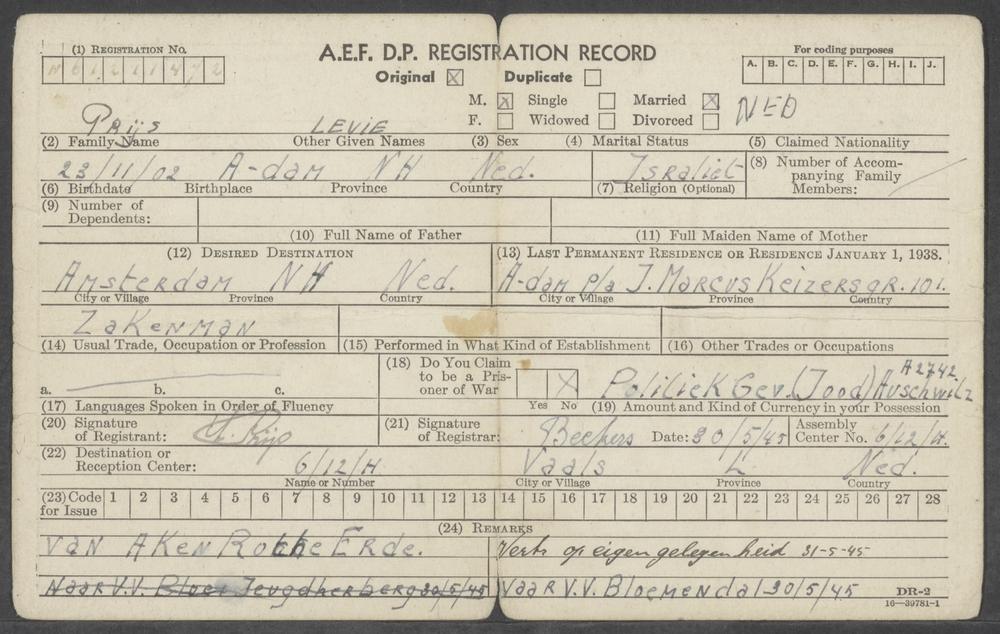 (1) REGISTRATION NO.
A.E.F. D.P. REGISTRATION RECORD
For coding purposes
Original ☒ Duplicate ☐
A. B. C. D. E. F. G. H. I. J.
M. ☒ Single ☐ Married ☒ NED
F. ☐ Widowed ☐ Divorced ☐
PRijs LEVIE
(2) Family Name Other Given Names (3) Sex (4) Marital Status (5) Claimed Nationality
23/11/02 A-dam NH Ned. Israliet
(6) Birthdate Birthplace Province Country (7) Religion (Optional)
(8) Number of Accompanying Family Members:
(9) Number of Dependents:
(10) Full Name of Father (11) Full Maiden Name of Mother
(12) DESIRED DESTINATION (13) LAST PERMANENT RESIDENCE OR RESIDENCE JANUARY 1, 1938.
Amsterdam NH Ned. A-dam p/a J. Marcus Keizersgr. 101.
City or Village Province Country City or Village Province Country
Zakenman
(14) Usual Trade, Occupation or Profession (15) Performed in What Kind of Establishment (16) Other Trades or Occupations
(18) Do You Claim to be a Prisoner of War Yes ☐ No ☒
Politiek Gev. (Jood) Auschwitz A2742
a. b. c.
(17) Languages Spoken in Order of Fluency (19) Amount and Kind of Currency in your Possession
(20) Signature of Registrant: (21) Signature of Registrar: Beckers Date: 30/5/45 Assembly Center No. 6/12/H.
(22) Destination or Reception Center: 6/12/H Vaals L Ned.
Name or Number City or Village Province Country
(23) Code for Issue 1 2 3 4 5 6 7 8 9 10 11 12 13 14 15 16 17 18 19 20 21 22 23 24 25 26 27 28
(24) REMARKS
Van Aken Rothe Erde. Vertr op eigen gelegenheid 31-5-45
Naar V.V. Bloe Jeugdherberg 30/5/45 Naar V.V. Bloemendal 30/5/45
DR-2
16—39781-1